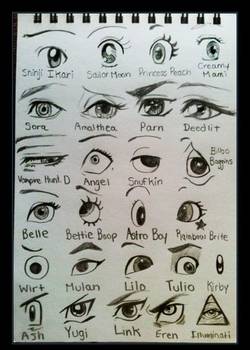 Shinji Ikari Sailor Moon Princess Peach Creamy Mami
Sora Amalthea Parn Deedlit
Vampire Hunt. D Angel Snufkin Bilbo Baggins
Belle Bettie Boop Astro Boy Rainbow Brite
Wirt Mulan Lilo Tulio Kirby
Ash Yugi Link Eren Illuminati